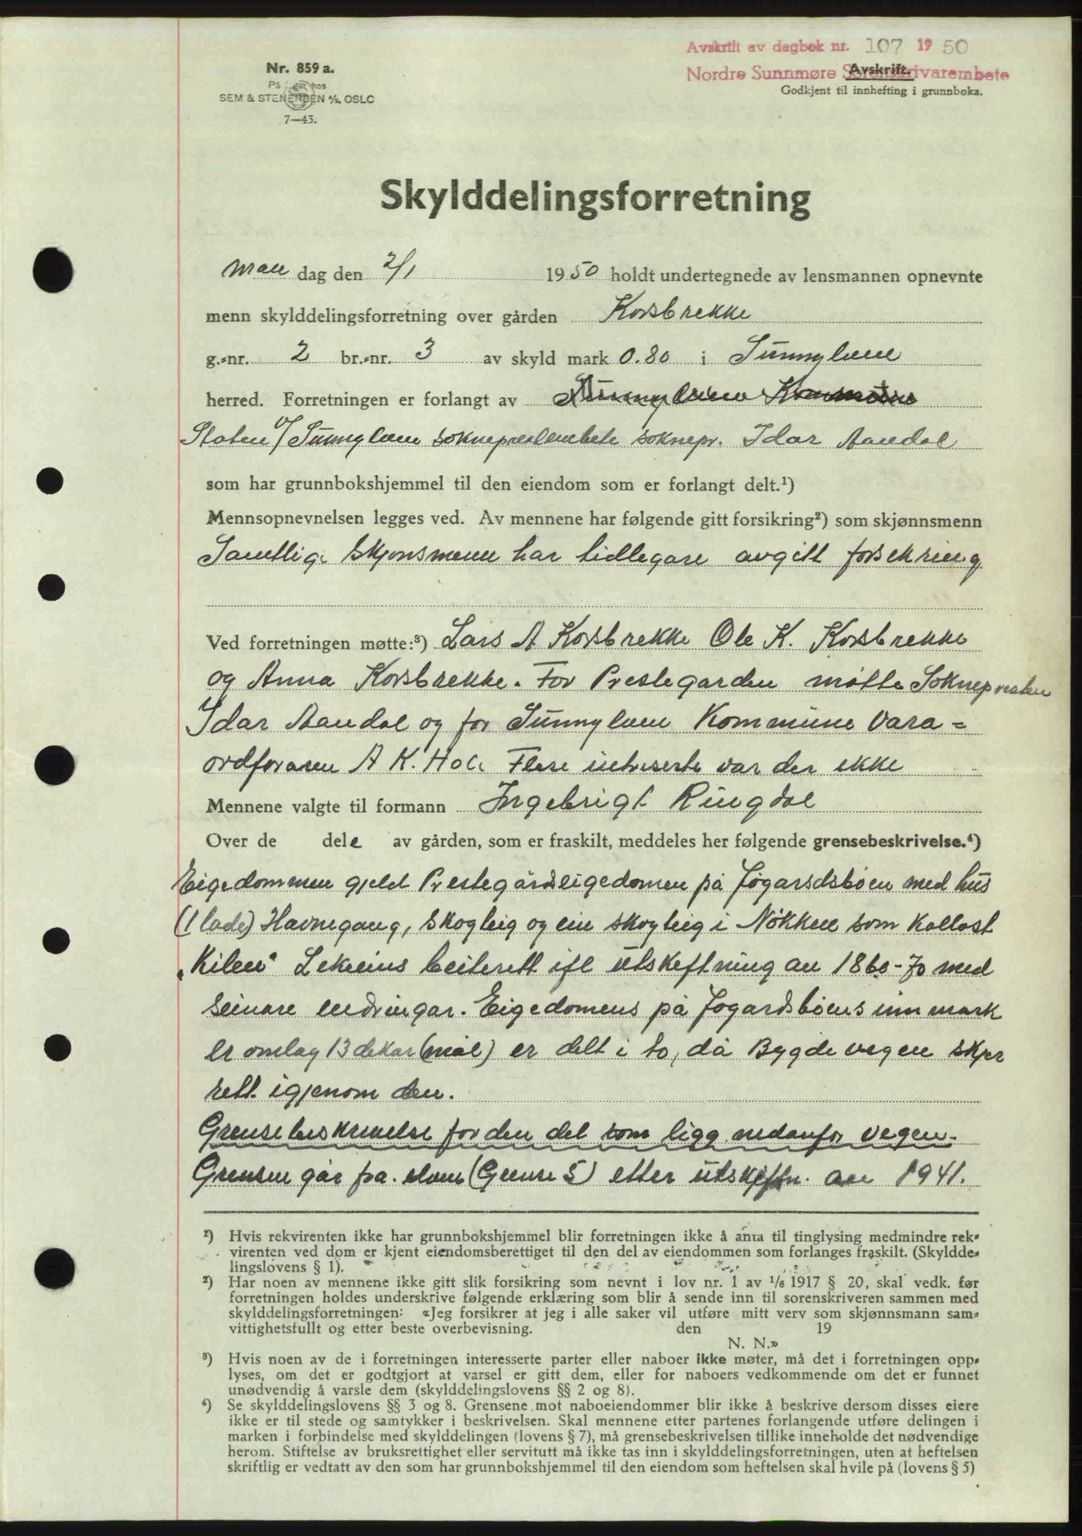 Avskrift av dagbok nr. 107 1950
Nordre Sunnmøre Sorenskrivarembete
Avskrift.
Godkjent til innhefting i grunnboka.
Nr. 859 a.
SEM & STENERSEN A/S, OSLO
7—43.
Skylddelingsforretning
Man dag den 2/1 1950 holdt undertegnede av lensmannen opnevnte
menn skylddelingsforretning over gården Korsbrekke
g.-nr. 2 br.-nr. 3 av skyld mark 0.80 i Sunnylven
herred. Forretningen er forlangt av Sunnylven Kommune
Staten v/ Sunnylven sokneprestembete soknepr. Idar Aandal
som har grunnbokshjemmel til den eiendom som er forlangt delt.¹)
Mennsopnevnelsen legges ved. Av mennene har følgende gitt forsikring²) som skjønnsmenn
Samtlige Skjønsmenn har tidlegare avgitt forsikring
Ved forretningen møtte:³) Lars A Korsbrekke Ole K. Korsbrekke
og Anna Korsbrekke. For Prestegarden møtte Soknepresten
Idar Aandal og for Sunnylven Kommune Vara=
ordføraren A K. Hole Flere interserte var der ikke
Mennene valgte til formann Ingebrigt Ringdal
Over de dele av gården, som er fraskilt, meddeles her følgende grensebeskrivelse.⁴)
Eigedommen gjeld Prestegårdseigedomen på Jogardsbøen med hus
(1 lade) Havnegang, skogteig og ein skogteig i Nøkken som kallast
„Kilen" beiterett ifl utskeftning av 1860-70 med
seinare endringar. Eigedomens på Jogardsbøens innmark
er omlag 13 dekar (mål) er delt i to, då Bygdevegen skjer
rett igjenom den.
Grensebeskrivelse for den del som ligg nedanfor vegen.
Grensen går fra. elven (Grense 5) etter utskiftn. av 1941.
¹) Hvis rekvirenten ikke har grunnbokshjemmel blir forretningen ikke å anta til tinglysing medmindre rek-
virenten ved dom er kjent eiendomsberettiget til den del av eiendommen som forlanges fraskilt. (Skyldde-
lingslovens § 1).
²) Har noen av mennene ikke gitt slik forsikring som nevnt i lov nr. 1 av 1/6 1917 § 20, skal vedk. før
forretningen holdes underskrive følgende erklæring som blir å sende inn til sorenskriveren sammen med
skylddelingsforretningen: «Jeg forsikrer at jeg i alle saker vil utføre mitt verv som skjønnsmann sam-
vittighetsfullt og etter beste overbevisning. den 19
N. N.»
³) Hvis noen av de i forretningen interesserte parter eller naboer ikke møter, må det i forretningen opp-
lyses, om det er godtgjort at varsel er gitt dem, eller for naboers vedkommende om det er funnet
unødvendig å varsle dem (skylddelingslovens §§ 2 og 8).
⁴) Se skylddelingslovens §§ 3 og 8. Grensene mot naboeiendommer blir ikke å beskrive dersom disses eiere
ikke er til stede og samtykker i beskrivelsen. Skal mennene etter partenes forlangende utføre delingen i
marken i forbindelse med skylddelingen (lovens § 7), må grensebeskrivelsen tillike inneholde det nødvendige
herom. Stiftelse av bruksrettighet eller servitutt må ikke tas inn i skylddelingsforretningen, uten at heftelsen
skriftlig er vedtatt av den som har grunnbokshjemmel til den eiendom som heftelsen skal hvile på (lovens § 5)